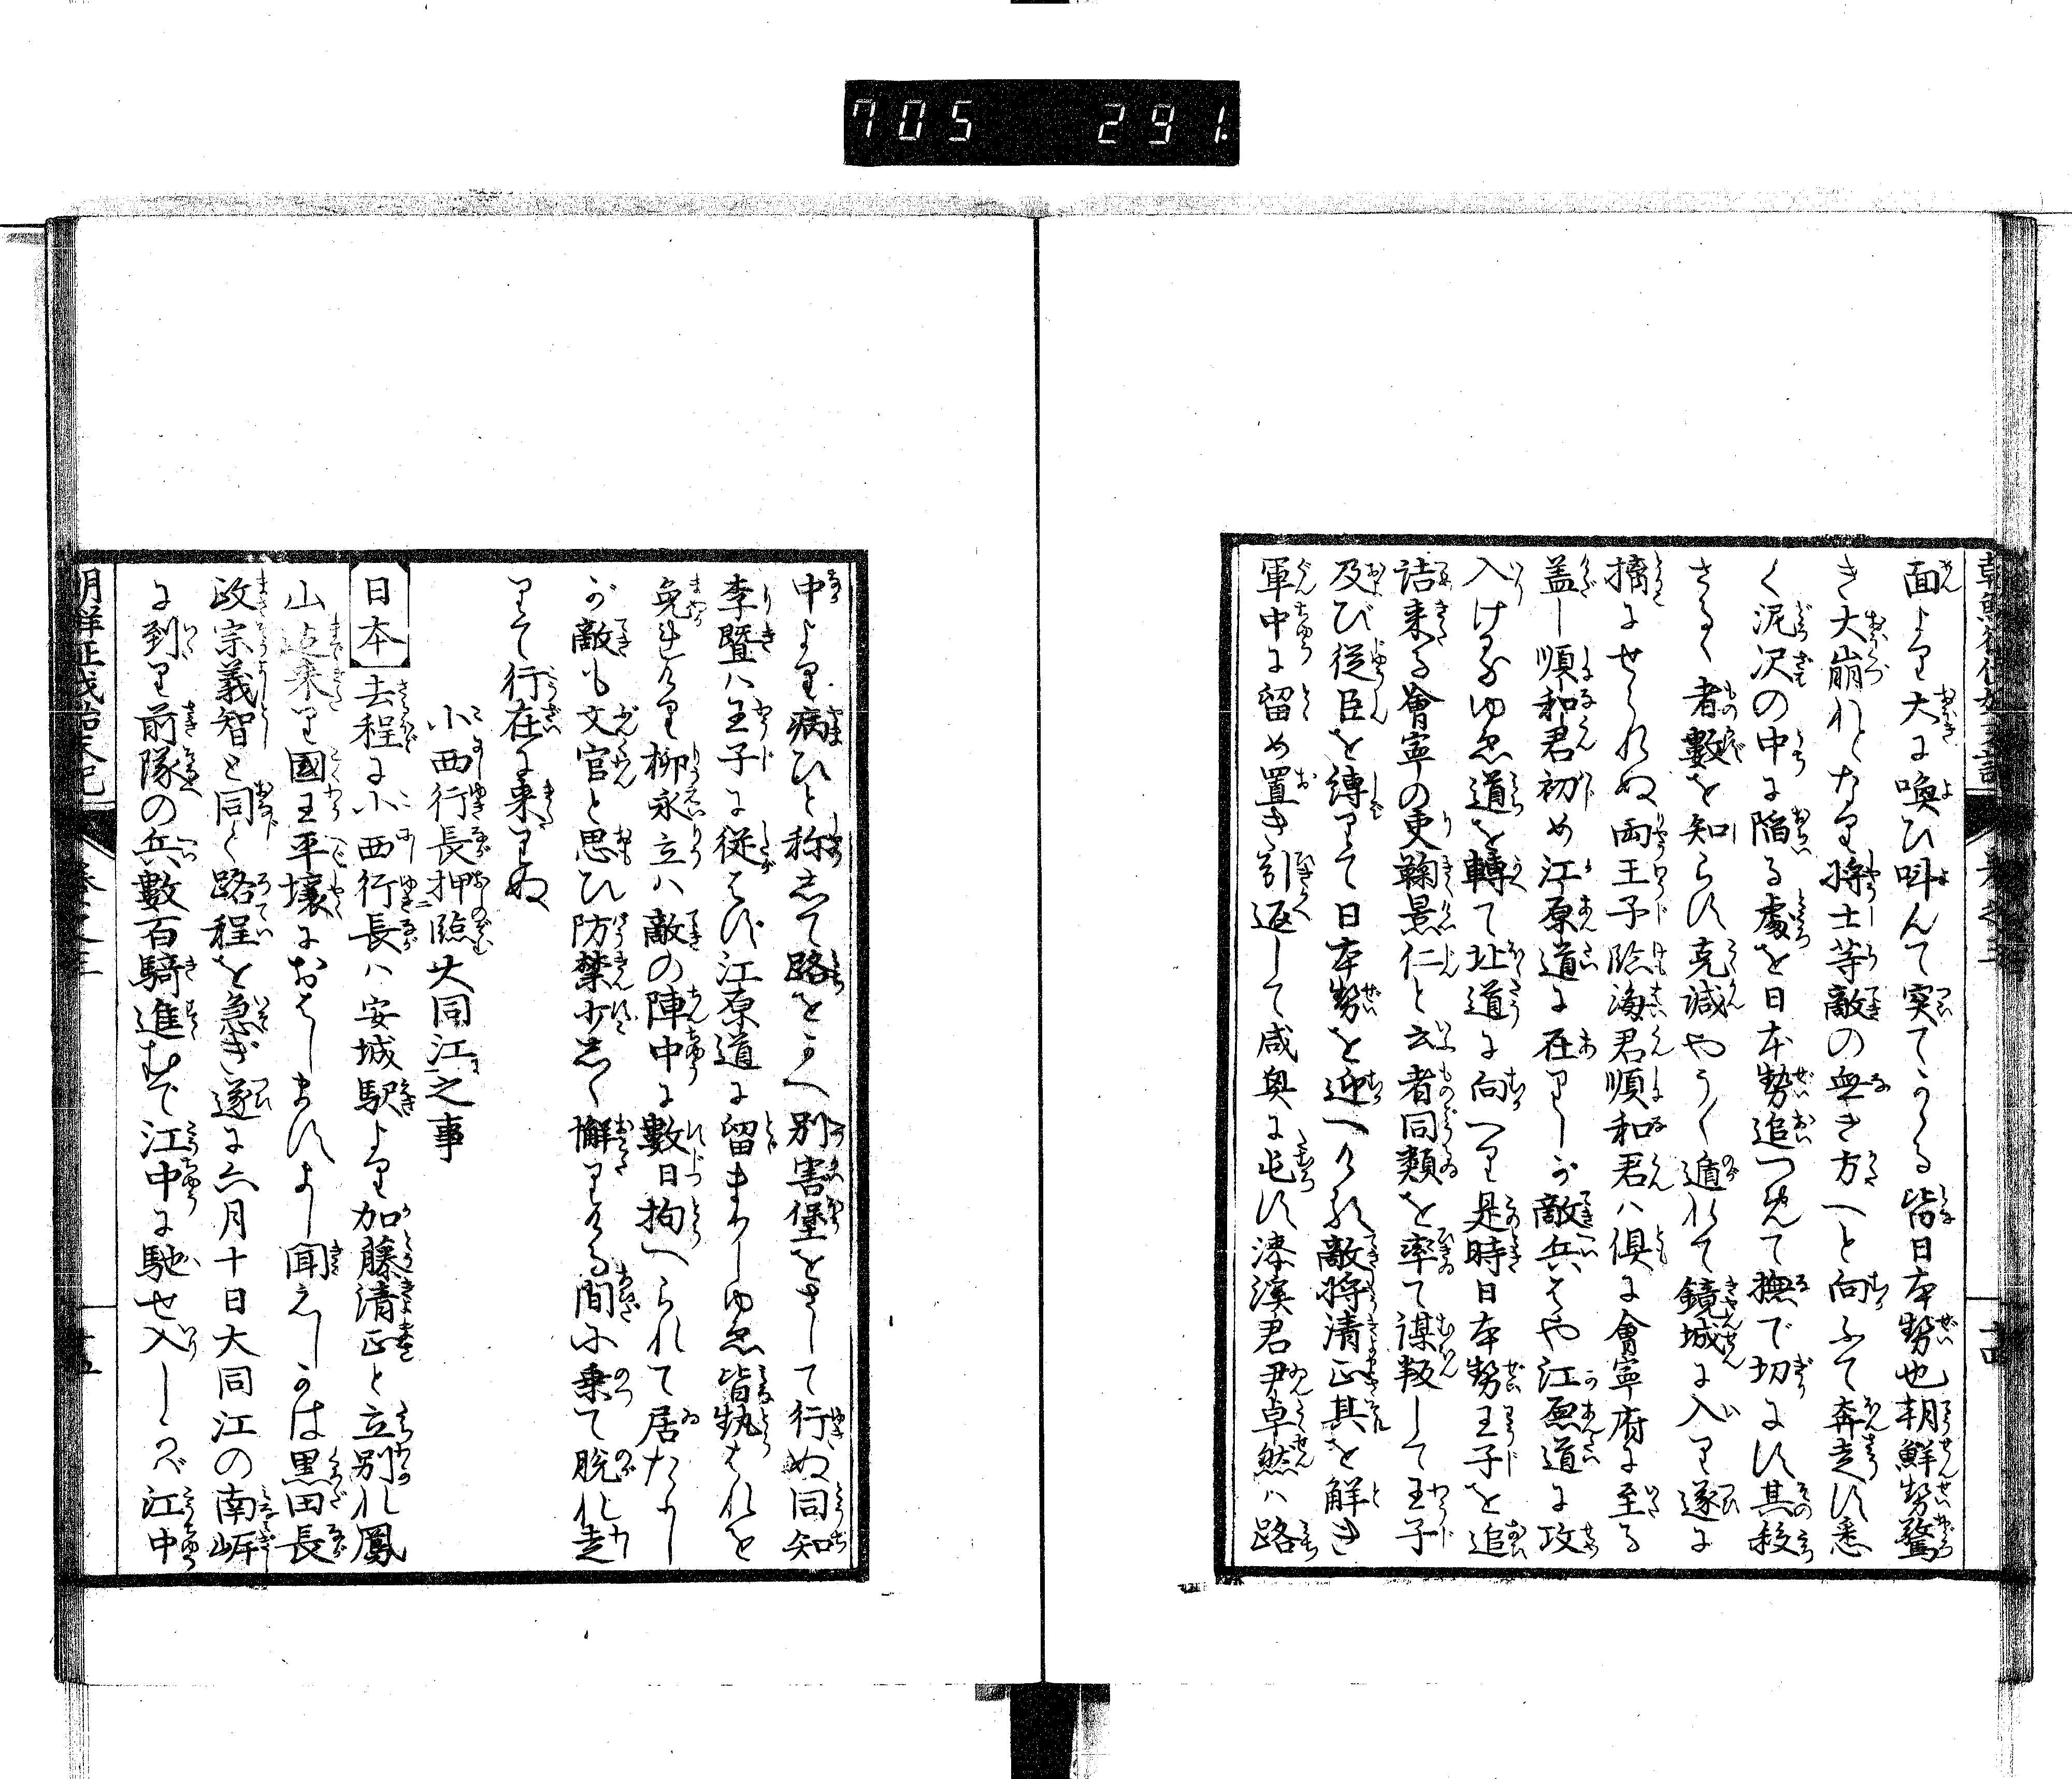 705 291
面より大に喚ひ叫んて突てかゝる皆日本勢也朝鮮勢驚
き大崩れとなり将士等敵の無き方へと向ふて奔走す悉
く泥沢の中に陥る處を日本勢追つめて撫で切にす其殺
さるゝ者數を知らす克諴やう〳〵遁れて鏡城に入り遂に
擒にせられぬ両王子臨海君順和君ハ倶に會寧府に至る
盖し順和君初め江原道に在りしが敵兵はや江原道に攻
入けるゆゑ道を轉て北道に向へり是時日本勢王子を追
詰来る會寧の吏鞠景仁と云者同類を率て謀叛して王子
及び従臣を縛りて日本勢を迎へける敵将清正其を解き
軍中に留め置き引返して咸興に屯す漆溪君尹卓然ハ路
中より病ひと称して路をかへ別害堡をさして行ぬ同知
李曁ハ王子に従はず江原道に留まりしゆゑ皆執はれを
免れけり柳永立ハ敵の陣中に數日拘へられて居たりし
が敵も文官と思ひ防禁少しく懈りける間に乗て脱れ走
りて行在に来りぬ
小西行長押臨大同江之事
日本 去程に小西行長ハ安城駅より加藤清正と立別れ鳳
山迄来り國王平壌におはしますよし聞えしかは黒田長
政宗義智と同く路程を急ぎ遂に六月十日大同江の南岸
に到り前隊の兵數百騎進むで江中に馳せ入しかば江中